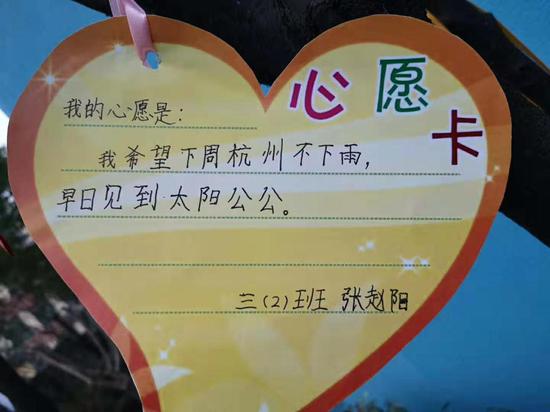 心愿卡
我的心愿是：
我希望下周杭州不下雨，
早日见到太阳公公。
三（2）班 张赵阳